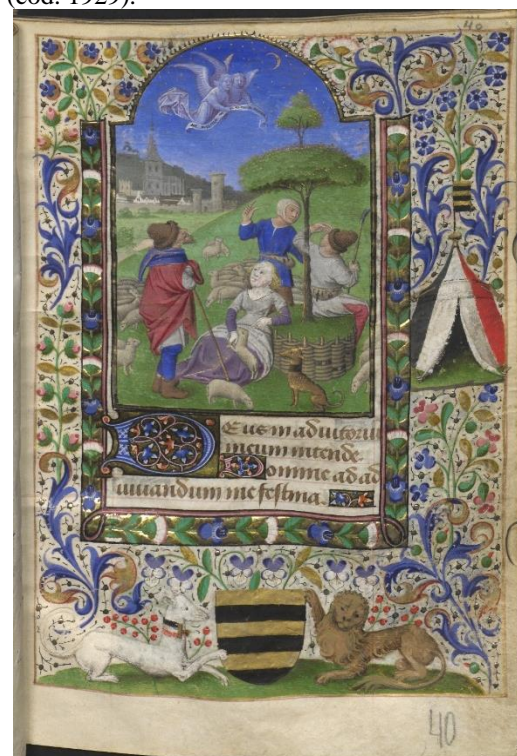 (cod. 1929).
40
Deus in adiutoriu
meum intende
Domine ad ad
iuuandum me festina
40